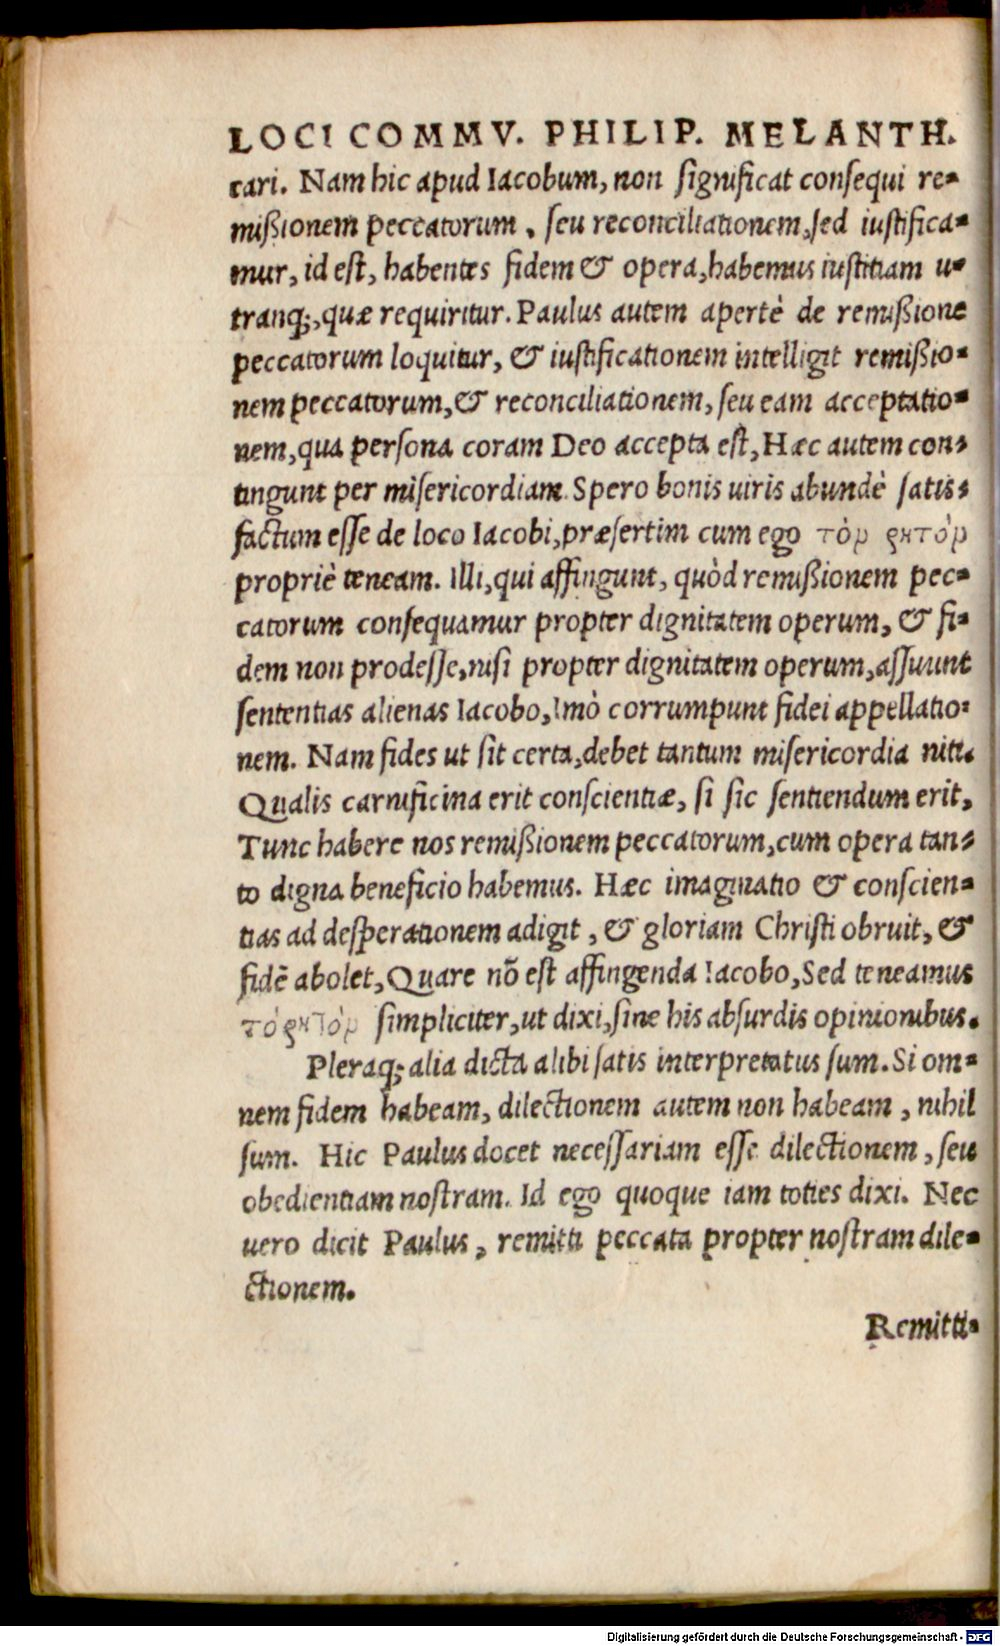 LOCI COMMV. PHILIP. MELANTH.
cari. Nam hic apud Iacobum, non significat consequi re-
mißionem peccatorum, seu reconciliationem, sed iustifica-
mur, id est, habentes fidem & opera, habemus iustitiam u-
tranq;, quæ requiritur. Paulus autem apertè de remißione
peccatorum loquitur, & iustificationem intelligit remißio-
nem peccatorum, & reconciliationem, seu eam acceptatio-
nem, qua persona coram Deo accepta est, Hæc autem con-
tingunt per misericordiam. Spero bonis uiris abundè satis-
factum esse de loco Iacobi, præsertim cum ego τὸν ῥητὸν
propriè teneam. Illi, qui affingunt, quòd remißionem pec-
catorum consequamur propter dignitatem operum, & fi-
dem non prodesse, nisi propter dignitatem operum, assuunt
sententias alienas Iacobo, Imò corrumpunt fidei appellatio-
nem. Nam fides ut sit certa, debet tantum misericordia niti.
Qualis carnificina erit conscientiæ, si sic sentiendum erit,
Tunc habere nos remißionem peccatorum, cum opera tan-
to digna beneficio habemus. Hæc imaginatio & conscien-
tias ad desperationem adigit, & gloriam Christi obruit, &
fidē abolet, Quare nō est affingenda Iacobo, Sed teneamus
τὸ ῥητὸν simpliciter, ut dixi, sine his absurdis opinionibus.
Pleraq; alia dicta alibi satis interpretatus sum. Si om-
nem fidem habeam, dilectionem autem non habeam, nihil
sum. Hic Paulus docet necessariam esse dilectionem, seu
obedientiam nostram. Id ego quoque iam toties dixi. Nec
uero dicit Paulus, remitti peccata propter nostram dile-
ctionem.
Remitti-
Digitalisierung gefördert durch die Deutsche Forschungsgemeinschaft - DFG